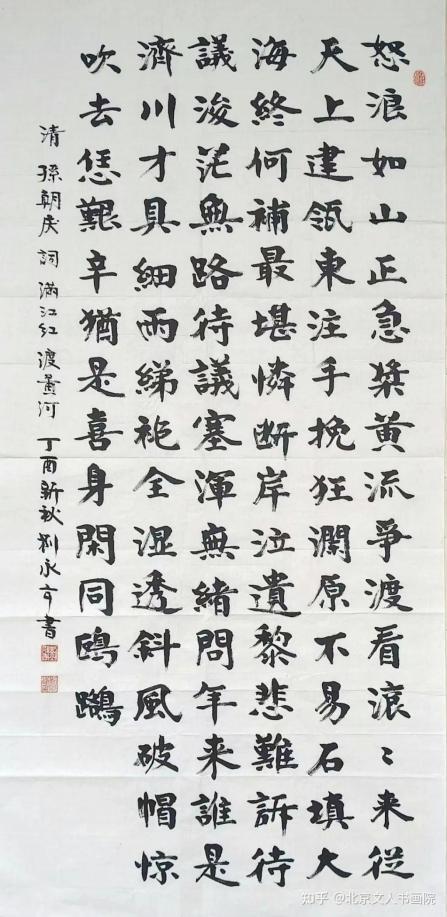 怒浪如山正急槳黄流爭渡看滚〻来從
天上建瓴東注手挽狂瀾原不易石填大
海終何補最堪憐断岸泣遺黎悲難訴待
議浚茫無路待議塞渾無緒問年来誰是
濟川才具細雨綈袍全湿透斜風破帽惊
吹去恁艱辛猶是喜身閑同鷗鷺
清 孫朝庆 詞 满江红 渡黄河 丁酉新秋 刘永書
知乎 @北京文人书画院